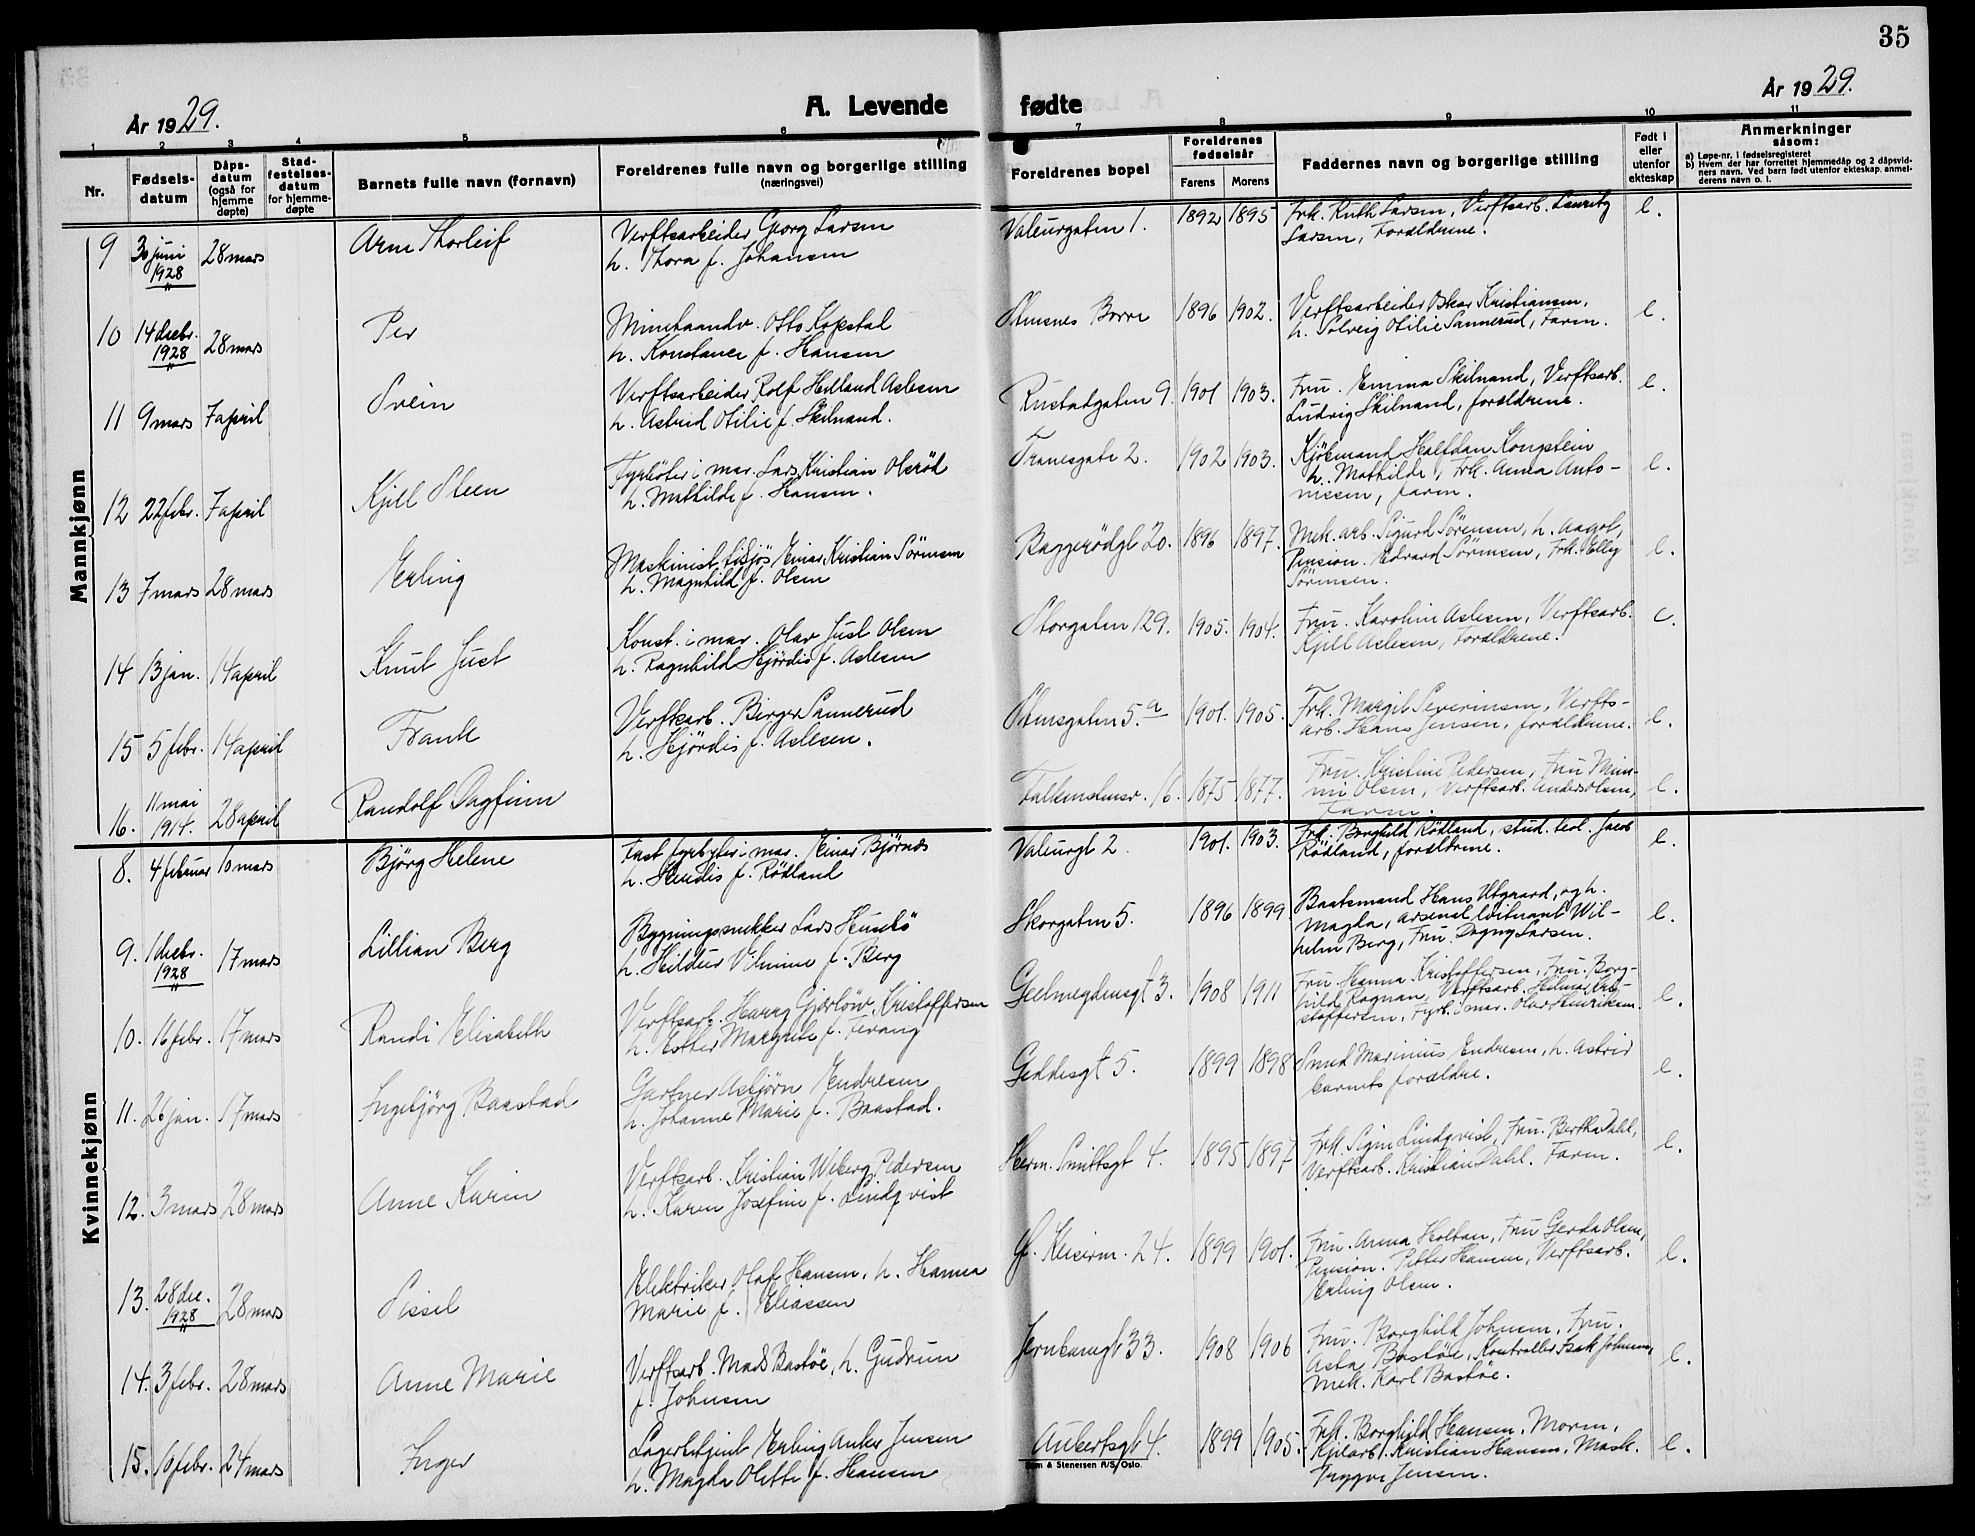 35
År 1929.
A. Levende fødte
År 1929.
1 2 3 4 5 6 7 8 9 10 11
Nr.
Fødsels-
datum
Dåps-
datum
(også for
hjemme
døpte)
Stad-
festelses-
datum
for hjemme-
døpte
Barnets fulle navn (fornavn)
Foreldrenes fulle navn og borgerlige stilling
(næringsvei)
Foreldrenes bopel
Foreldrenes
fødselsår
Farens Morens
Faddernes navn og borgerlige stilling
Født i
eller
utenfor
ekteskap
Anmerkninger
såsom:
a) Løpe-nr. i fødselsregisteret
b) Hvem der har forrettet hjemmedåp og 2 dåpsvid-
ners navn. Ved barn født utenfor ekteskap, anmel-
derens navn o. l.
Mannkjønn
9 30 juni 1928 28 mars Arne Thorleif
Verftsarbeider Georg Larsen
h. Thora f. Johansen
Valeurgaten 1. 1892 1895
Frk. Ruth Larsen, Verftsarb. Lauritz
Larsen, Forældrene.
e.
10 14 decbr. 1928 28 mars Per
Minehaandv. Otto Kopstal
h. Konstance f. Hansen
Stensnes Borre 1896 1902.
Verftsarbeider Oskar Kristiansen,
h. Solveig Otilie Sannerud, Farm.
e.
11 9 mars 7 april Svein
Verftsarbeider Rolf Helland Aslesen
h. Astrid Otilie f. Skilnand.
Rustadgaten 9. 1901 1903.
Fru. Emma Skilnand, Verftsarb.
Ludvig Skilnand, forældrene.
e.
12 22 febr. 7 april Kjell Steen
Fyrbøter i mar. Lars Kristian Olsrød
h. Mathilde f. Hansen.
Tranesgate 2. 1902 1903.
Kjøbmand Halfdan Kongstein
h. Mathilde, Frk. Anna Anto-
nissen, farm.
e.
13 7 mars 28 mars Erling
Maskinist tilsjøs Einar Kristian Sørensen
h. Magnhild f. Olsen
Baggerødgt 20. 1896 1897.
Mek. arb. Sigurd Sørensen, h. Aagot,
Pension. Edvard Sørensen, Frk. Elly
Sørensen.
e.
14 13 jan. 14 april Knut Just
Konst. i mar. Olav Just Olsen
h. Ragnhild Hjørdis f. Aslesen
Storgaten 129. 1905. 1904.
Fru. Karoline Aslesen, Verftsarb.
Kjell Aslesen, Forældrene.
e.
15 5 febr. 14 april Frank
Verftsarb. Birger Sannerud
h. Hjørdis f. Aslesen.
Stensgaten 5.a 1901. 1905.
Frk. Margit Severinsen, Verfts-
arb. Hans Jensen, forældrene.
e.
16. 11 mai 1914. 28 april Randolf Dagfinn
Falkenstensv. 16. 1875 1877.
Fru. Kristine Pedersen, Fru Min-
ni Olsen, Verftsarb. Anders Olsen,
Farm.
e.
Kvinnekjønn
8. 4 februar 10 mars Bjørg Helene
Fast fyrbyter i mar. Einar Bjørnås
h. Herdis f. Rødland
Valeurgt 2. 1901. 1903.
Frk. Borghild Rødland, stud. teol. Jacob
Rødland, forældrene.
e.
9. 1 decbr. 1928 17 mars Lillian Berg
Bygningssnekker Lars Hunsbø
h. Hildur Vilmine f. Berg
Skorgaten 5. 1896 1899.
Baatsmand Hans Utgaard, og h.
Magda, arsenal løitnant Wil-
helm Berg, Fru. Dagny Larsen.
e.
10. 16 febr. 17 mars Randi Elisabeth
Verftsarb. Harry Gjerløw Kristoffersen
h. Esther Margrete f. Tevang
Geelmeydensgt 3. 1908 1911
Fru. Hanna Kristoffersen, Fru. Borg-
hild Ragnan, Verftsarb. Hilmar Kri-
stoffersen, Fyrb. i mar. Olav Henriksen.
e.
11. 26 jan. 17 mars Ingebjørg Baastad
Gartner Asbjørn Endresen
h. Johanne Marie f. Baastad.
Geddesgt 5. 1899 1898
Smed Marinius Endresen, h. Astrid
barnets forældre.
e.
12. 3 mars 28 mars Anne Karin
Verftsarb. Kristian Wiberg Pedersen
h. Karen Josefine f. Lindqvist
Herm. Smittsgt 4. 1895 1897
Frk. Signe Lindqvist, Fru. Bertha Dahl,
Verftsarb. Kristian Dahl. Farm.
e.
13. 28 dec. 1928 28 mars Sissel
Elektriker Olaf Hansen, h. Hanna
Marie f. Eliassen
Gl. Keiserm. 24. 1899 1901.
Fru. Anna Holtan, Fru Gerda Olsen,
Pension. Petter Hansen, Verftsarb.
Erling Olsen.
e.
14. 3 febr. 28 mars Anne Marie
Verftsarb. Mads Bastøe, h. Gudrun
f. Johnsen
Jernbanegt 33. 1908 1906
Fru. Borghild Johnsen, Fru.
Asta Bastøe, Kontrollør Isak Johnsen,
mek. Karl Bastøe.
e.
15. 10 febr. 24 mars Inger
Lagerbetjent Erling Anker Jensen
h. Magda Olette f. Hansen
Aubertsgt 4. 1899 1905.
Frk. Borghild Hansen, Morm,
Kjelarb. Kristian Hansen, Mask.
Tryggve Jensen.
e.
Sem & Stenersen A/S, Oslo.